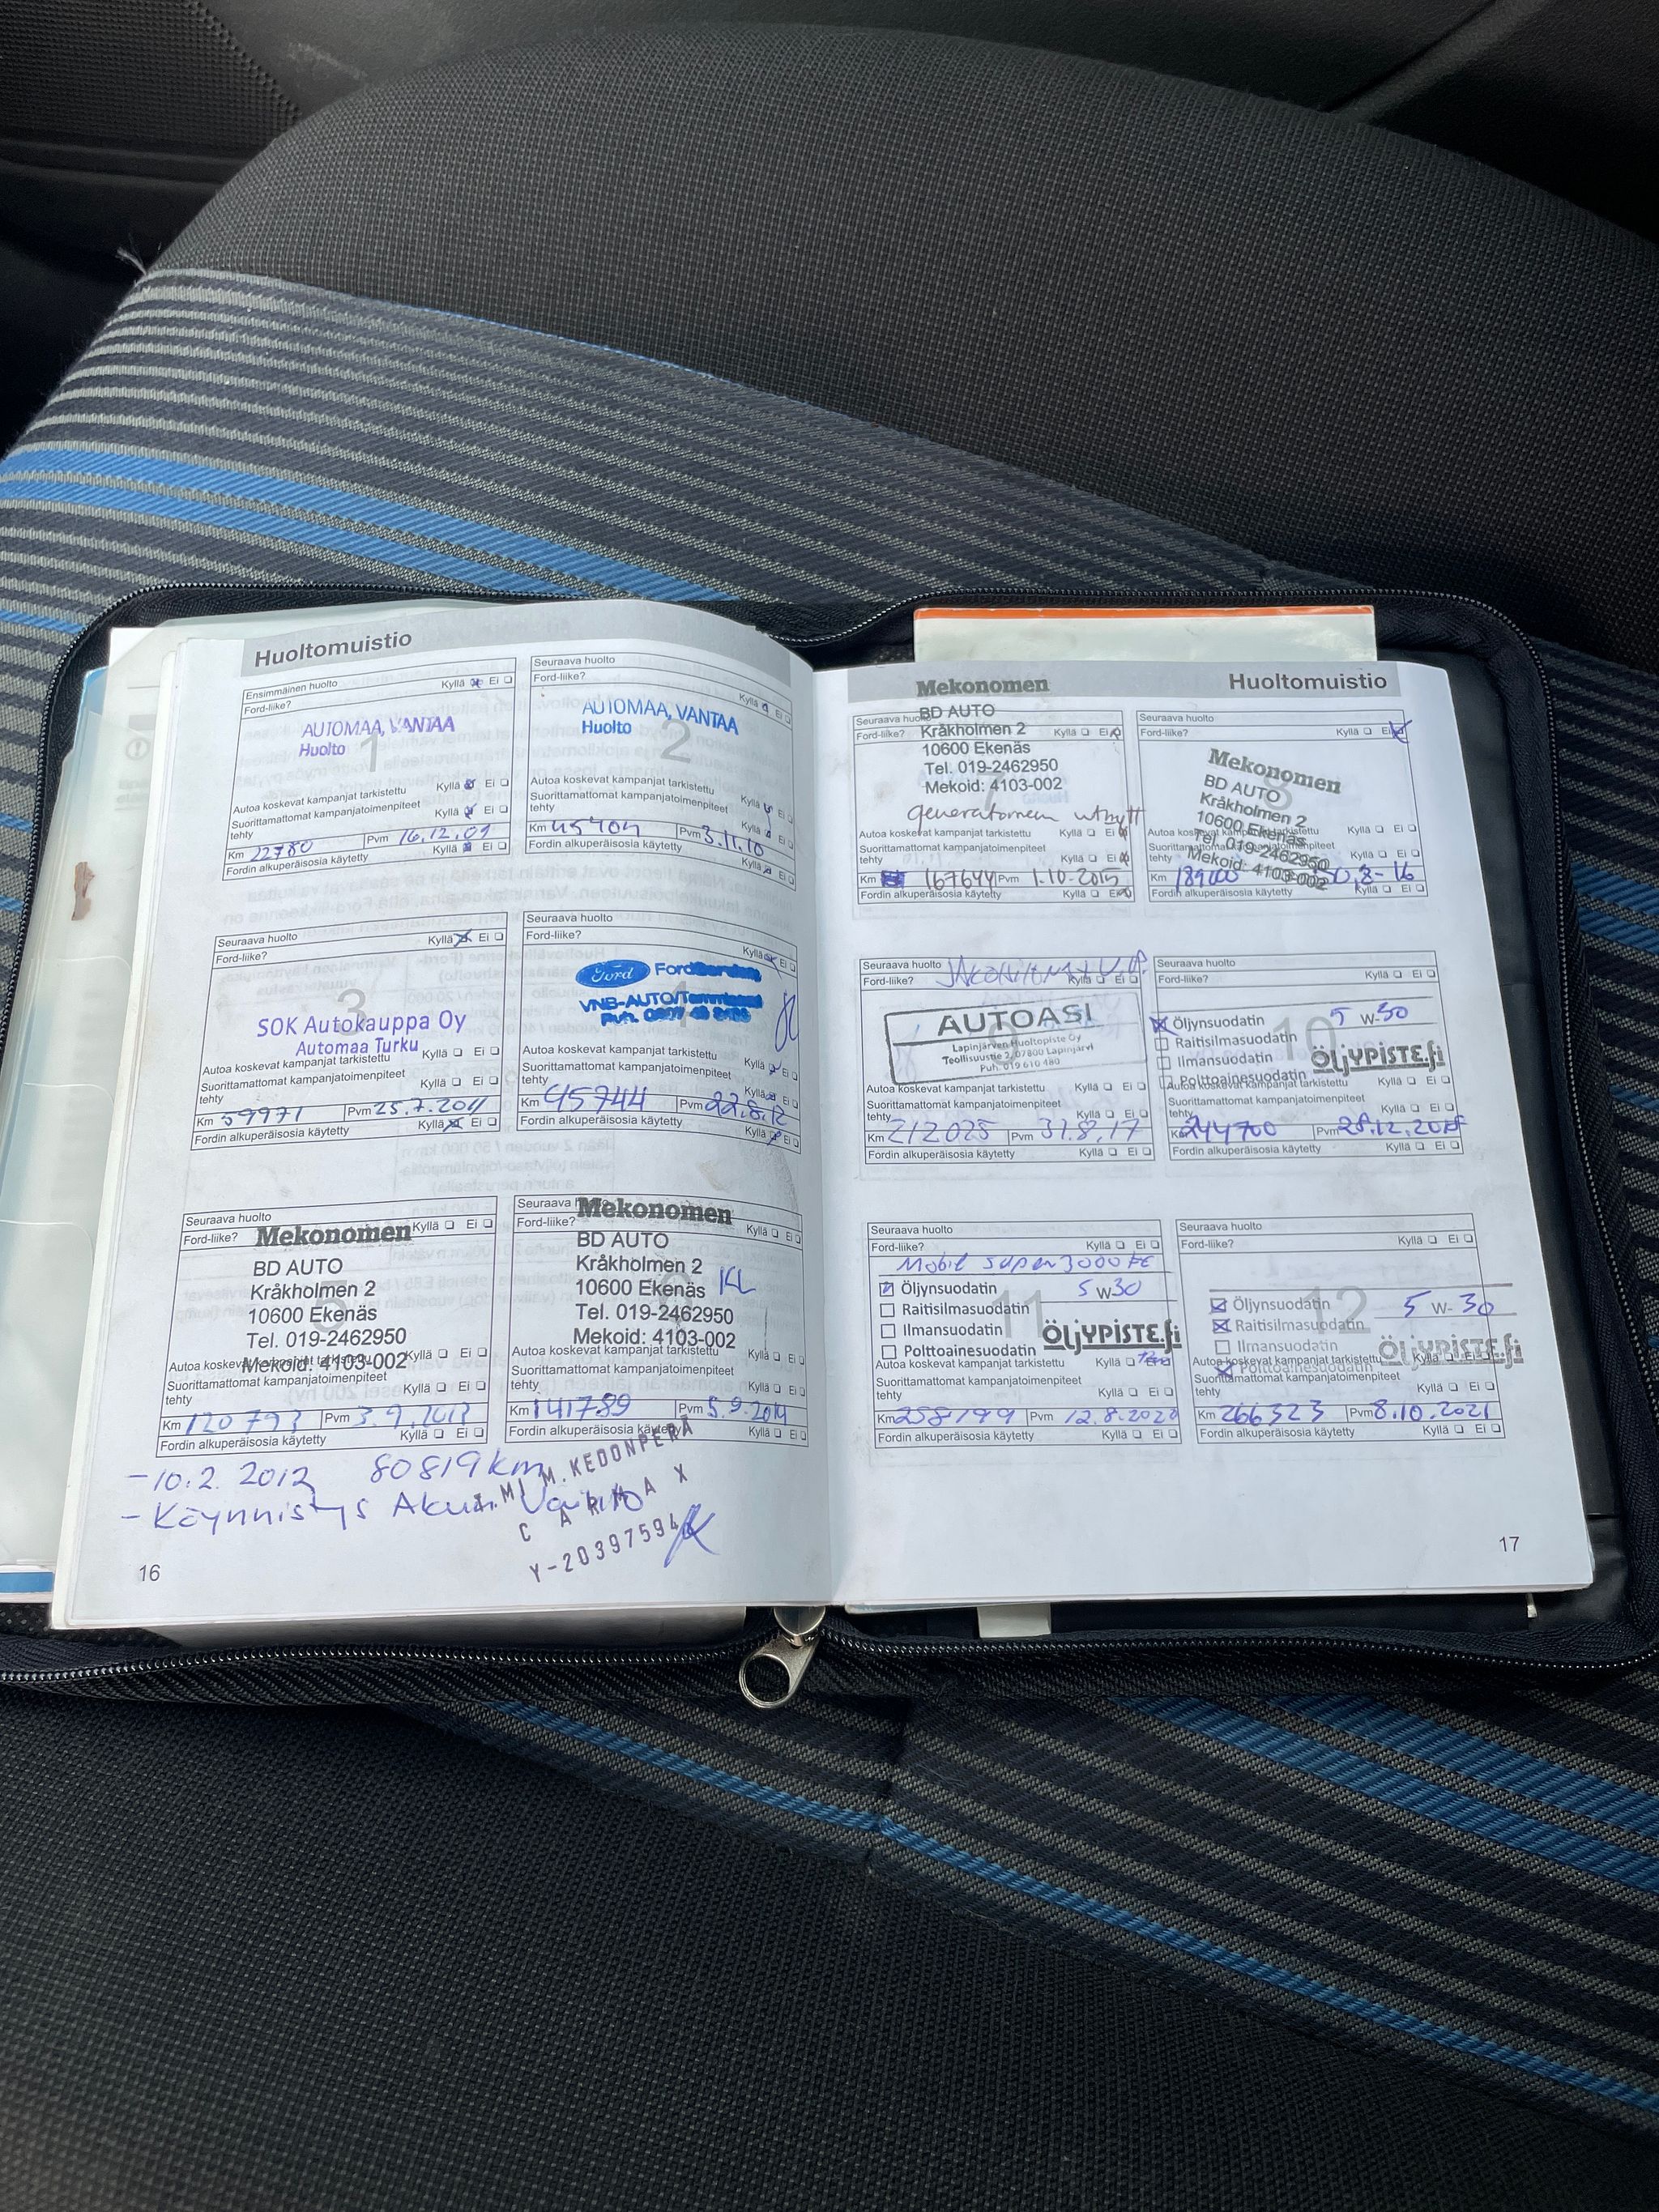 Huoltomuistio
Ensimmäinen huolto
Ford-liike? Kyllä Ei
AUTOMAA, VANTAA
Huolto
1
Autoa koskevat kampanjat tarkistettu Kyllä Ei
Suorittamattomat kampanjatoimenpiteet
tehty Kyllä Ei
Km 22780 Pvm 16.12.09
Fordin alkuperäisosia käytetty Kyllä Ei
Seuraava huolto
Ford-liike? Kyllä Ei
AUTOMAA, VANTAA
Huolto
2
Autoa koskevat kampanjat tarkistettu Kyllä
Suorittamattomat kampanjatoimenpiteet
tehty Kyllä Ei
Km 45704 Pvm 3.11.10
Fordin alkuperäisosia käytetty Kyllä Ei
Seuraava huolto
Ford-liike? Kyllä Ei
3
SOK Autokauppa Oy
Automaa Turku
Autoa koskevat kampanjat tarkistettu Kyllä Ei
Suorittamattomat kampanjatoimenpiteet
tehty Kyllä Ei
Km 59971 Pvm 25.7.2011
Fordin alkuperäisosia käytetty Kyllä Ei
Seuraava huolto
Ford-liike? Kyllä Ei
Ford Ford
VNB-AUTO/
Puh.
4
Autoa koskevat kampanjat tarkistettu Kyllä Ei
Suorittamattomat kampanjatoimenpiteet
tehty Kyllä Ei
Km 95744 Pvm 22.8.12
Fordin alkuperäisosia käytetty Kyllä Ei
Seuraava huolto
Ford-liike? Kyllä Ei
Mekonomen
BD AUTO
Kråkholmen 2
10600 Ekenäs
Tel. 019-2462950
Mekoid: 4103-002
5
Autoa koskevat kampanjat tarkistettu Kyllä Ei
Suorittamattomat kampanjatoimenpiteet
tehty Kyllä Ei
Km 120793 Pvm 3.9.2013
Fordin alkuperäisosia käytetty Kyllä Ei
Seuraava huolto
Ford-liike? Kyllä Ei
Mekonomen
BD AUTO
Kråkholmen 2
10600 Ekenäs KL
Tel. 019-2462950
Mekoid: 4103-002
6
Autoa koskevat kampanjat tarkistettu Kyllä Ei
Suorittamattomat kampanjatoimenpiteet
tehty Kyllä Ei
Km 141789 Pvm 5.9.2014
Fordin alkuperäisosia käytetty Kyllä Ei
-10.2.2012 80819 km
- Köynnistys Akun Vaihto
T:MI M.KEDONPERÄ
CARMAX
Y-20397594
16
Huoltomuistio
Seuraava huolto
Ford-liike? Kyllä Ei
Mekonomen
BD AUTO
Kråkholmen 2
10600 Ekenäs
Tel. 019-2462950
Mekoid: 4103-002
7
generatornem utbytt
Autoa koskevat kampanjat tarkistettu Kyllä Ei
Suorittamattomat kampanjatoimenpiteet
tehty Kyllä Ei
Km 167644 Pvm 1.10-2015
Fordin alkuperäisosia käytetty Kyllä Ei
Seuraava huolto
Ford-liike? Kyllä Ei
Mekonomen
BD AUTO
Kråkholmen 2
10600 Ekenäs
Tel. 019-2462950
Mekoid: 4103-002
8
Autoa koskevat kampanjat tarkistettu Kyllä Ei
Suorittamattomat kampanjatoimenpiteet
tehty Kyllä Ei
Km 8-16
Fordin alkuperäisosia käytetty Kyllä Ei
Seuraava huolto
Ford-liike? Kyllä Ei
AUTOASI
Lapinjärven Huoltopiste Oy
Teollisuustie 2, 07800 Lapinjärvi
Puh. 019 610 480
9
Autoa koskevat kampanjat tarkistettu Kyllä Ei
Suorittamattomat kampanjatoimenpiteet
tehty Kyllä Ei
Km 212025 Pvm 31.8.17
Fordin alkuperäisosia käytetty Kyllä Ei
Seuraava huolto
Ford-liike? Kyllä Ei
Öljynsuodatin 5 W-30
Raitisilmasuodatin
Ilmansuodatin
Polttoainesuodatin
10
ÖljYPISTE.fi
Autoa koskevat kampanjat tarkistettu Kyllä Ei
Suorittamattomat kampanjatoimenpiteet
tehty Kyllä Ei
Km 244700 Pvm 28.12.
Fordin alkuperäisosia käytetty Kyllä Ei
Seuraava huolto
Ford-liike? Kyllä Ei
Mobil super 3000 FE
Öljynsuodatin 5 W 30
Raitisilmasuodatin
Ilmansuodatin
Polttoainesuodatin
11
ÖljYPISTE.fi
Autoa koskevat kampanjat tarkistettu Kyllä
Suorittamattomat kampanjatoimenpiteet
tehty Kyllä Ei
Km 258199 Pvm 12.8.2020
Fordin alkuperäisosia käytetty Kyllä Ei
Seuraava huolto
Ford-liike? Kyllä Ei
Öljynsuodatin 5 W-30
Raitisilmasuodatin
Ilmansuodatin
Polttoainesuodatin
12
ÖljYPISTE.fi
Autoa koskevat kampanjat tarkistettu Kyllä Ei
Suorittamattomat kampanjatoimenpiteet
tehty Kyllä Ei
Km 266323 Pvm 8.10.2021
Fordin alkuperäisosia käytetty Kyllä Ei
17